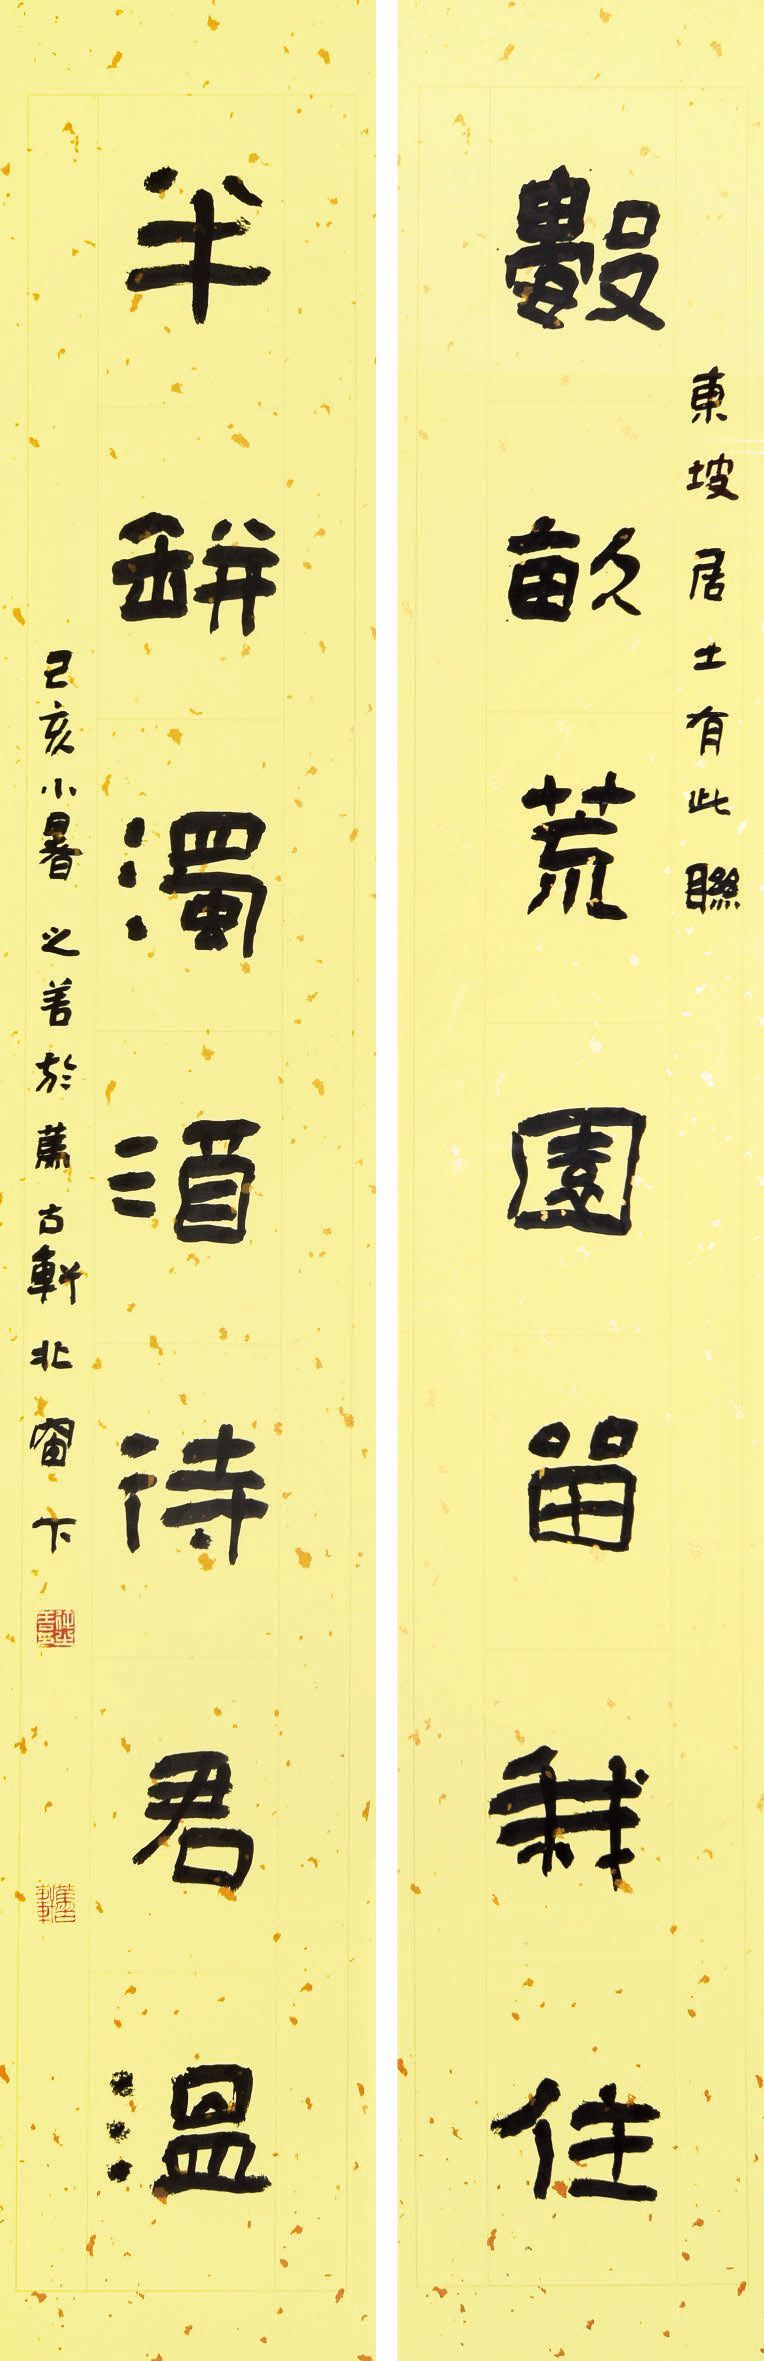 東坡居士有此聯
數畝荒園留我住
半缾濁酒待君溫
己亥小暑之善於薰古軒北窗下